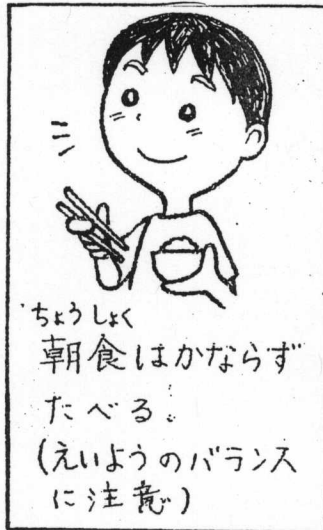 ちょうしょく
朝食はかならず
たべる。
(えいようのバランス
に注意)